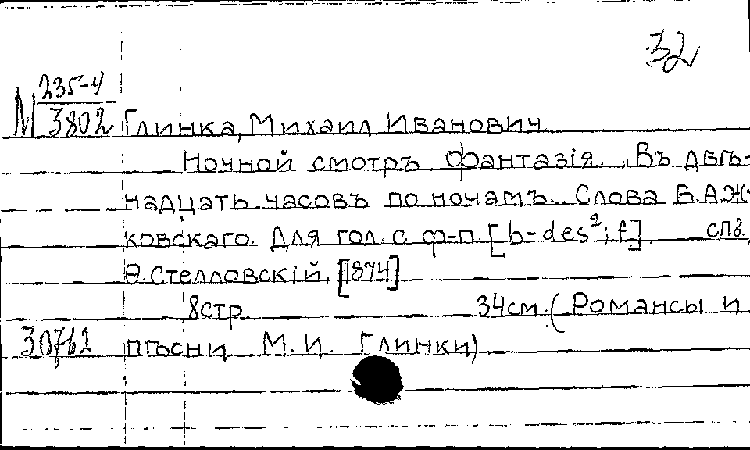 32
М 235-4
3802 Глинка, Михаил Иванович
Ночной смотръ фантазія. Въ двѣ-
надцать часовъ по ночамъ. Слова В.А.Ж-
ковскаго. Для гол. с ф-п. [b-des²; f]. СПб,
Ѳ.Стелловскій, [1874]
8стр. 34см. (Романсы и
30762 пѣсни М.И. Глинки)